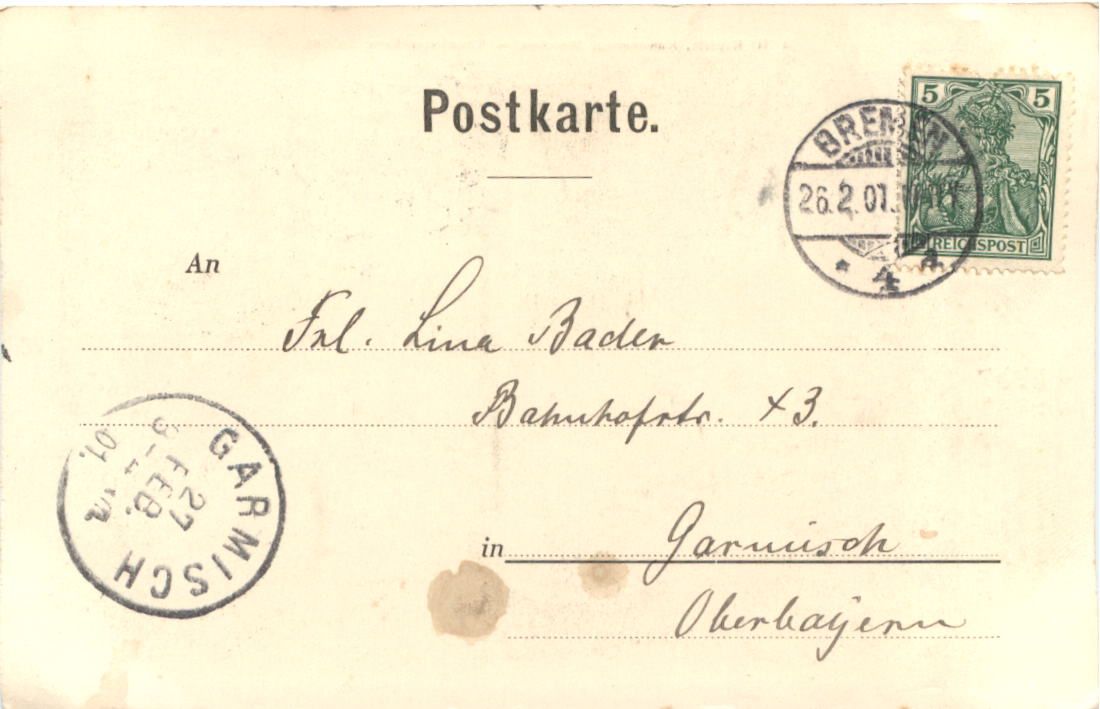 Postkarte.
5 5
REICHSPOST
BREMEN
26.2.01.
* 4 a
An
Frl. Lina Bader
Bahnhofstr. 43.
in Garmisch
Oberbayern
GARMISCH
27
FEB.
01.